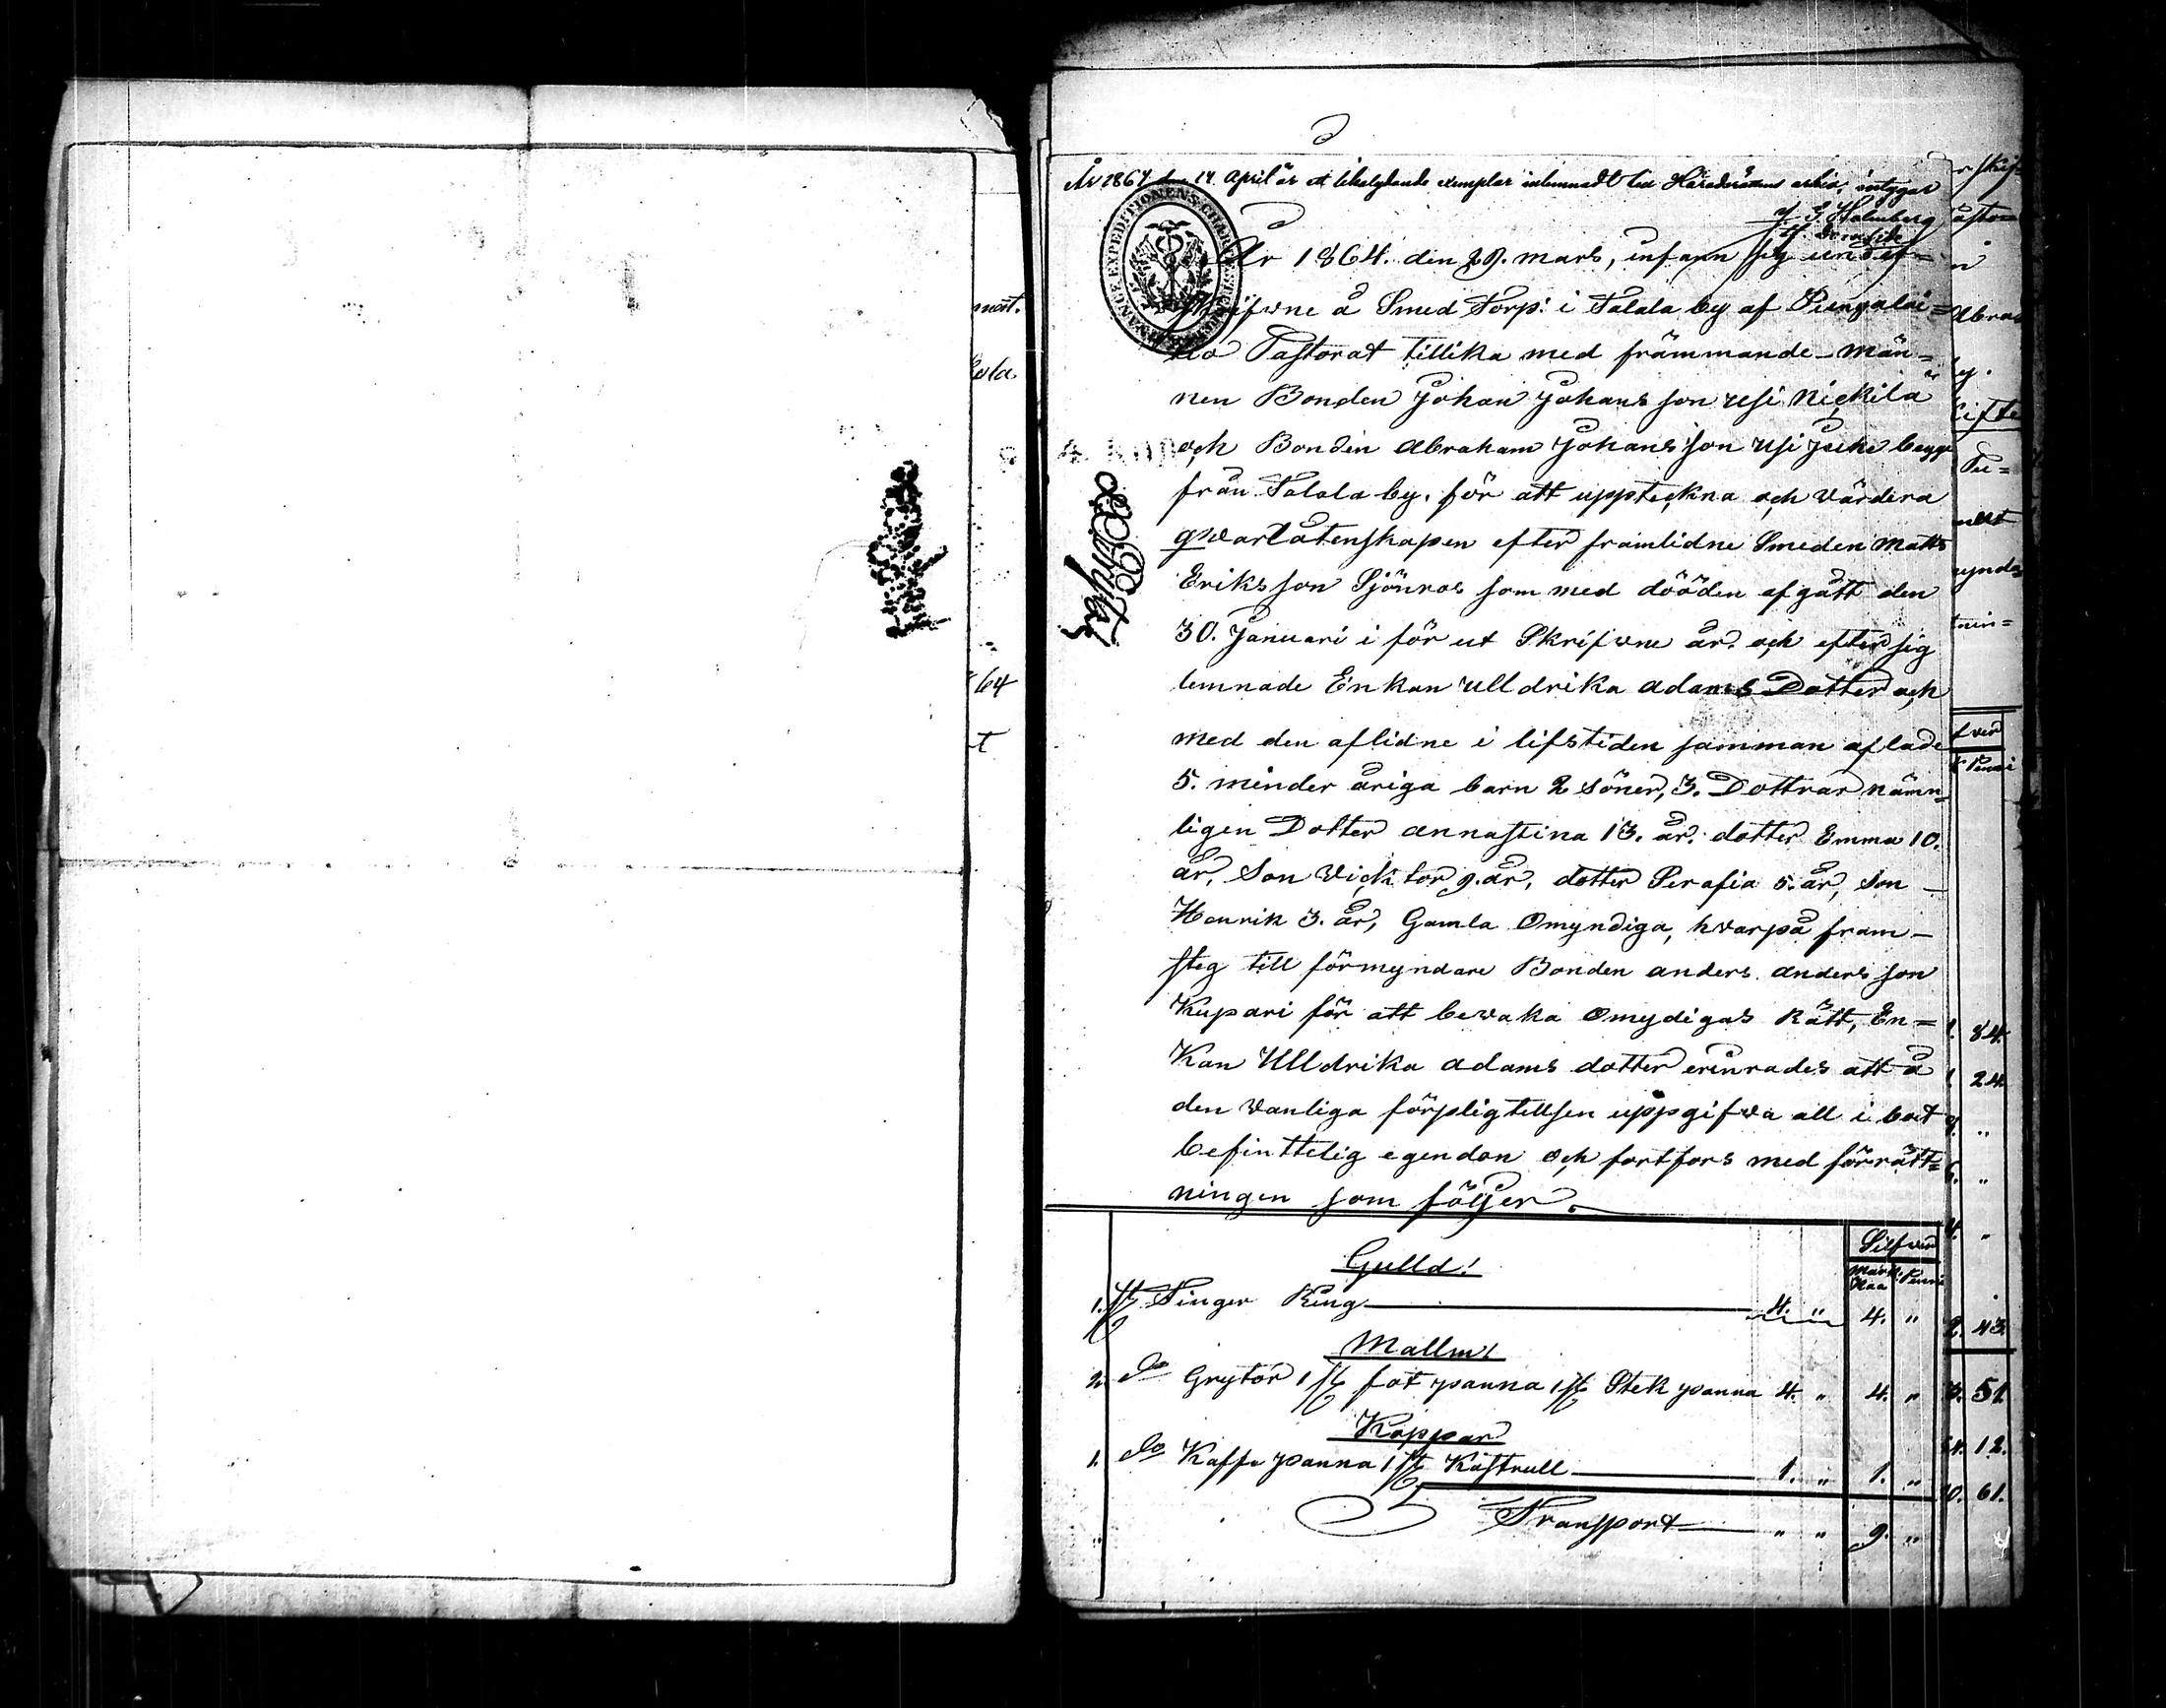 År 1864 den 14 April är ett likalydande exemplar inlemnadt till Häradsrättens arkiv, intygar
År 1864. den 29. mars, infann sig under=
skrifwne å Smed Torp: i Talala by af Pungalai=
tio Pastorat tillika med främmande-män=
nen Bonden Johan Johans son usi Nickilä
och Bonden Abraham Johans son usi Jscke begge
från Talala by. för att uppteckna och värdera
qwarlåtenskapen efter framlidne Smeden Matts
Eriks son Sjönros som med dööden afgått den
30. Januari i för ut Skrifwne år. och efter sig
lemnade Enkan Ulldrika adams Dotter och
med den aflidne i lifstiden samman aflade
5. minder åriga barn 2 söner, 3. Dottrar näm=
ligen Dotter annastina 13. år. dotter Emma 10.
år, Son Wicktor 9. år, dotter Serafia 5. år, son –
Henrik 3. år, Gamla Omyndiga, hwarpå fram–
steg till förmyndare Bonden anders anders son
Kupari för att bewaka Omydigas Rätt, En=
Kan Ulldrika adams dotter erinrades att å
den wanliga förpligtellsen uppgifwa all i boet
befinttelig egendon och fortfors med förrätt=
ningen som följer.
Silfwer
Mark Penni
Gulld!
1. st Finger Ring 4. " 4. "
Mallm!
2. do Grytor 1 st fot panna 1 st Stek panna 4. " 4. "
Koppar
1. do Kaffe panna 1 st Kastrull 1. " 1. "
Transport " " 9. "